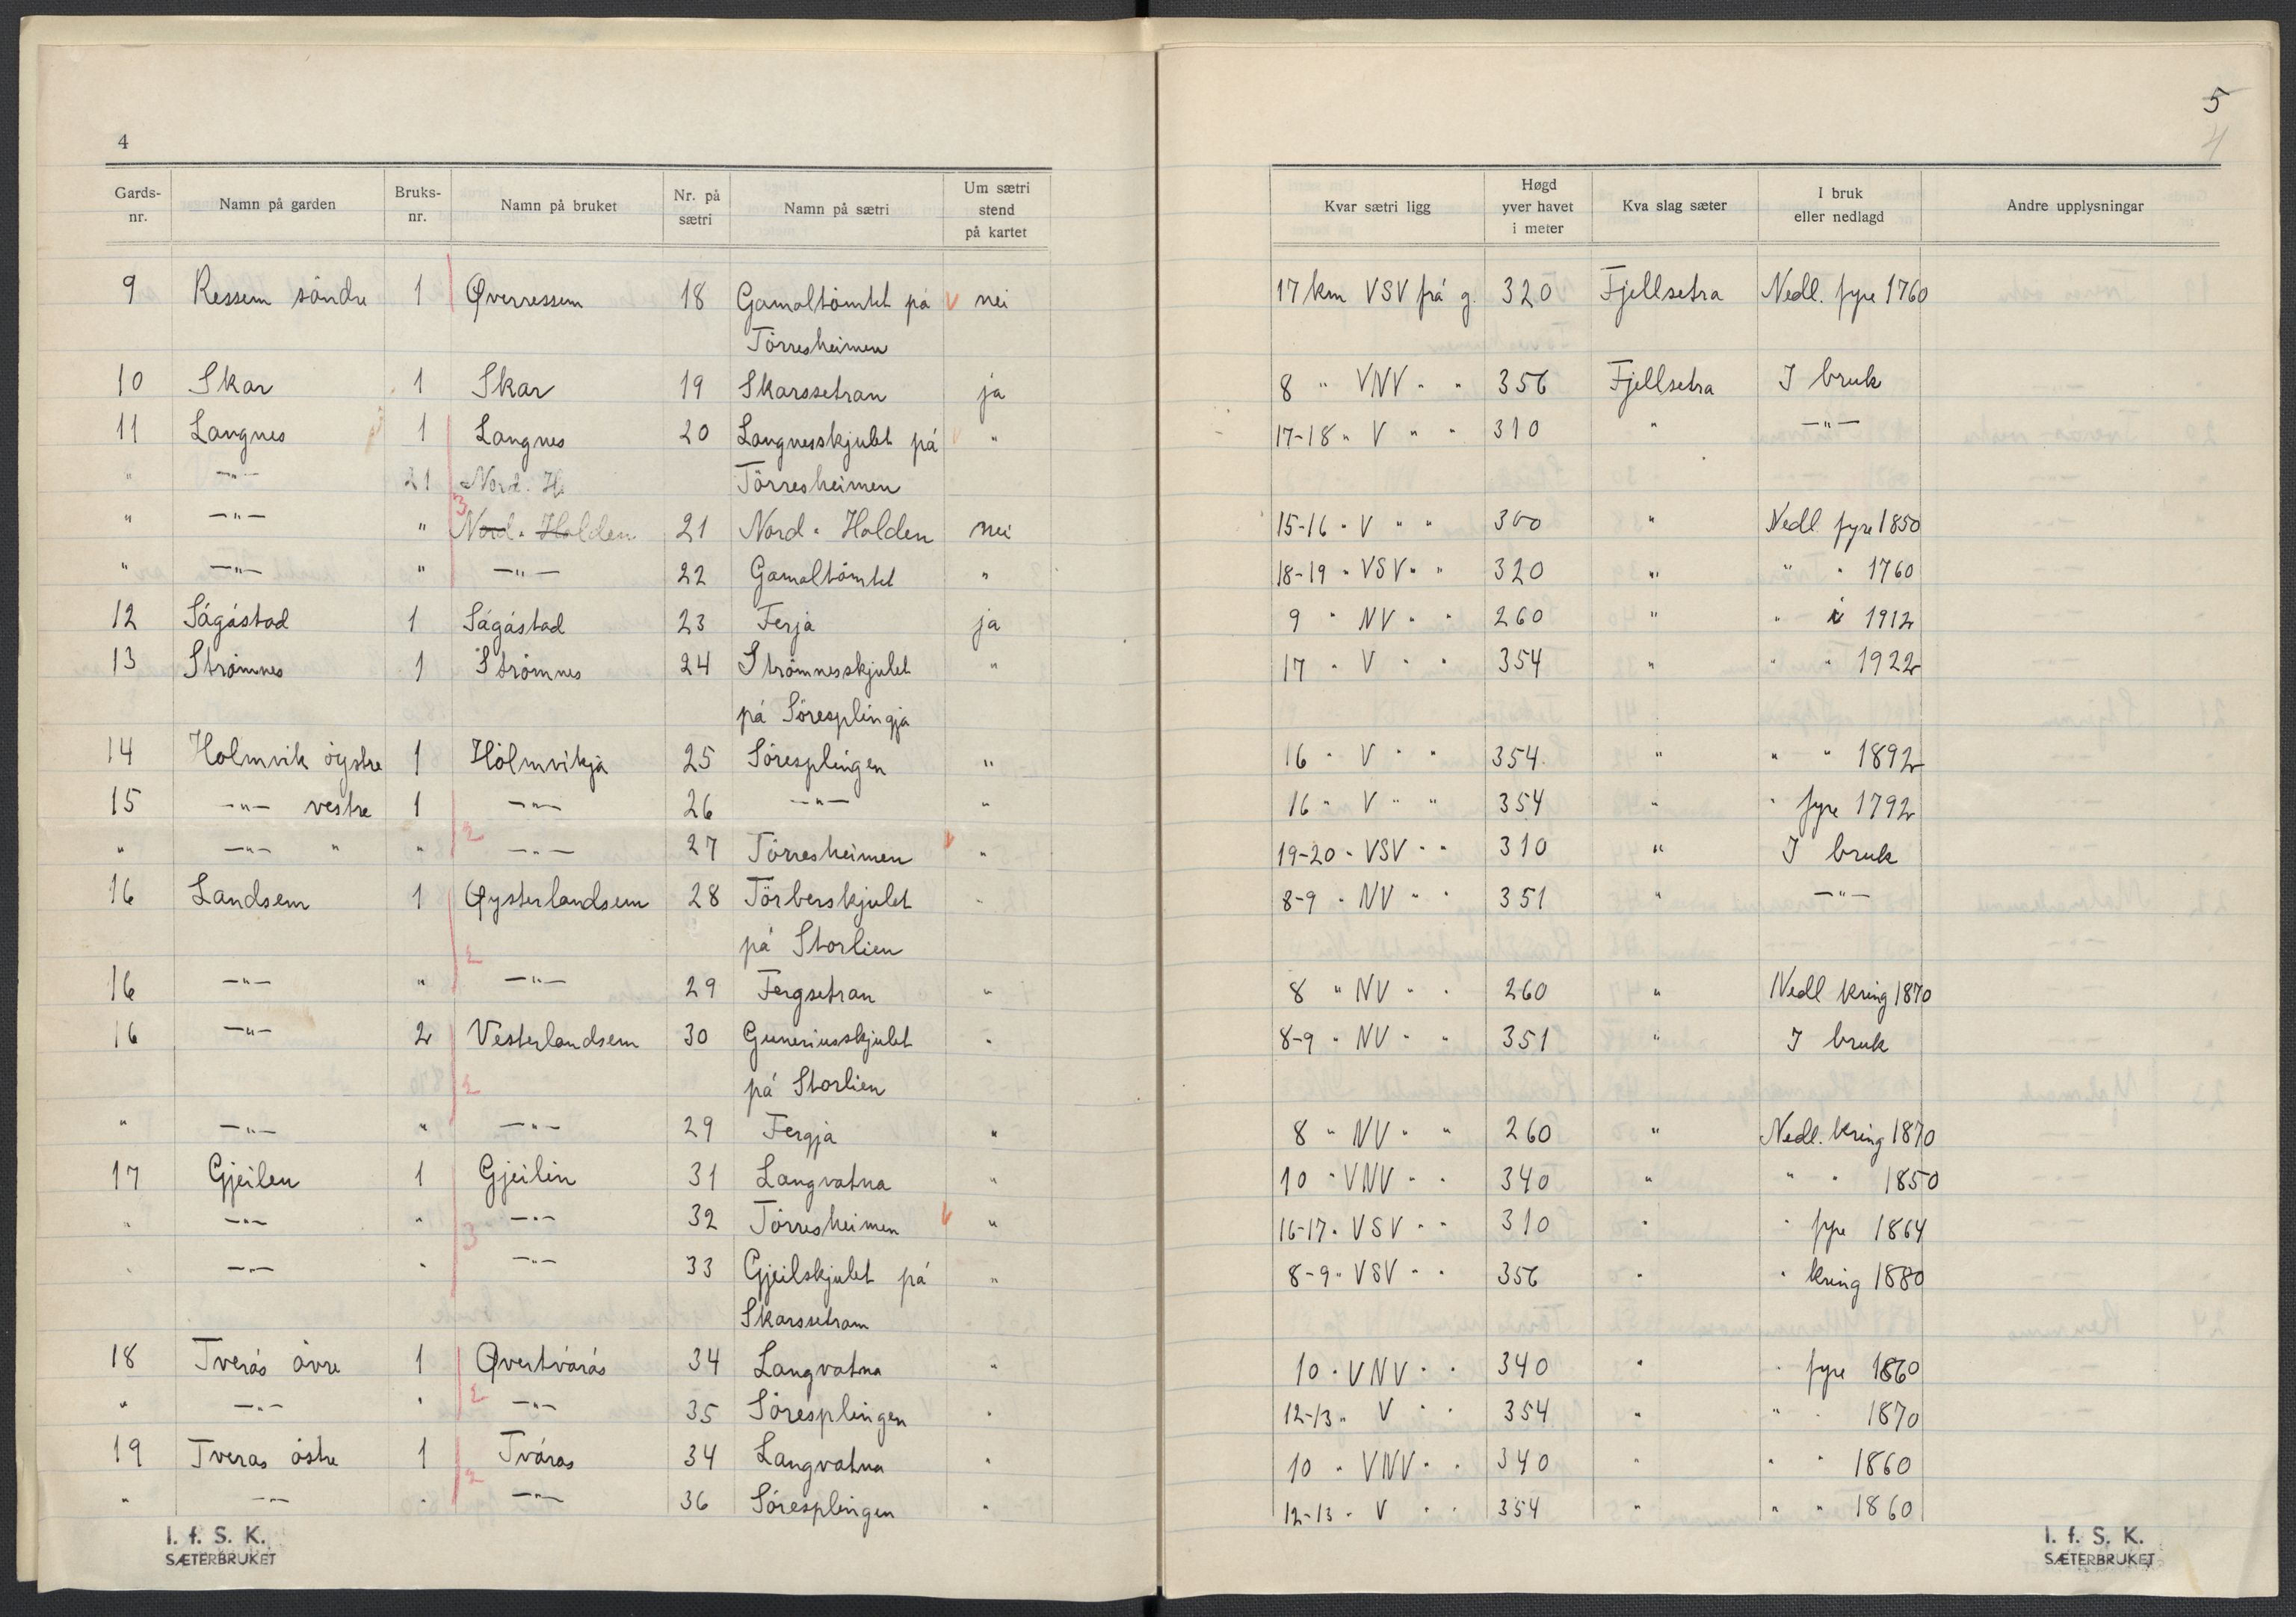 4
Gards-nr. Namn på garden Bruks-nr. Namn på bruket Nr. på sætri Namn på sætri Um sætri stend på kartet
9 Ressem söndre 1 Øverressem 18 Gamaltömtet på v nei
Törresheimen
10 Skar 1 Skar 19 Skarssetran ja
11 Langnes 1 Langnes 20 Langnesskjulet på v "
" —"— 21 Nord. H Törresheimen
3
" —"— " Nord. Holden 21 Nord. Holden nei
" —"— " —"— 22 Gamaltömtet "
12 Sågåstad 1 Sågåstad 23 Ferja ja
13 Strömnes 1 Strömnes 24 Strömnesskjulet "
på Söresplingja
14 Holmvik öystre 1 Hölmvikja 25 Söresplingen "
15 —"— vestre 1 —"— 26 —"— "
2
" —"— " " —"— 27 Törresheimen v "
16 Landsem 1 Øysterlandsem 28 Törberskjulet "
på Storlien
2
16 —"— " —"— 29 Fergsetran "
16 —"— 2 Vesterlandsem 30 Guneriusskjulet "
2 på Storlien
" —"— " —"— 29 Fergja "
17 Gjeilen 1 Gjeilin 31 Langvatna "
" —"— " —"— 32 Törresheimen v "
3
" —"— " —"— 33 Gjeilskjulet på "
Skarssetran
18 Tverås övre 1 Øvertvårås 34 Langvatna "
2
" —"— " —"— 35 Söresplingen "
19 Tveras östre 1 Tvåras 34 Langvatna "
2
" —"— " —"— 36 Söresplingen "
I. f. S. K.
SÆTERBRUKET
5
4
Kvar sætri ligg Høgd yver havet i meter Kva slag sæter I bruk eller nedlagd Andre upplysningar
17 km VSV frå g. 320 Fjellsetra Nedl. fyre 1760
8 " VNV " " 356 Fjellsetra I bruk
17-18 " V " " 310 " —"—
15-16 " V " " 300 " Nedl fyre 1850
18-19 " VSV " " 320 " " " 1760
9 " NV " " 260 " " i 1912
17 " V " " 354 " " " 1922
16 " V " " 354 " " " 1892
16 " V " " 354 " " fyre 1792
19-20 " VSV " " 310 " I bruk
8-9 " NV " " 351 " —"—
8 " NV " " 260 " Nedl kring 1870
8-9 " NV " " 351 " I bruk
8 " NV " " 260 " Nedl. kring 1870
10 " VNV " " 340 " " " 1850
16-17 " VSV " " 310 " " fyre 1864
8-9 " VSV " " 356 " " kring 1880
10 " VNV " " 340 " " fyre 1860
12-13 " V " " 354 " " " 1870
10 " VNV " " 340 " " " 1860
12-13 " V " " 354 " " " 1860
I. f. S. K.
SÆTERBRUKET